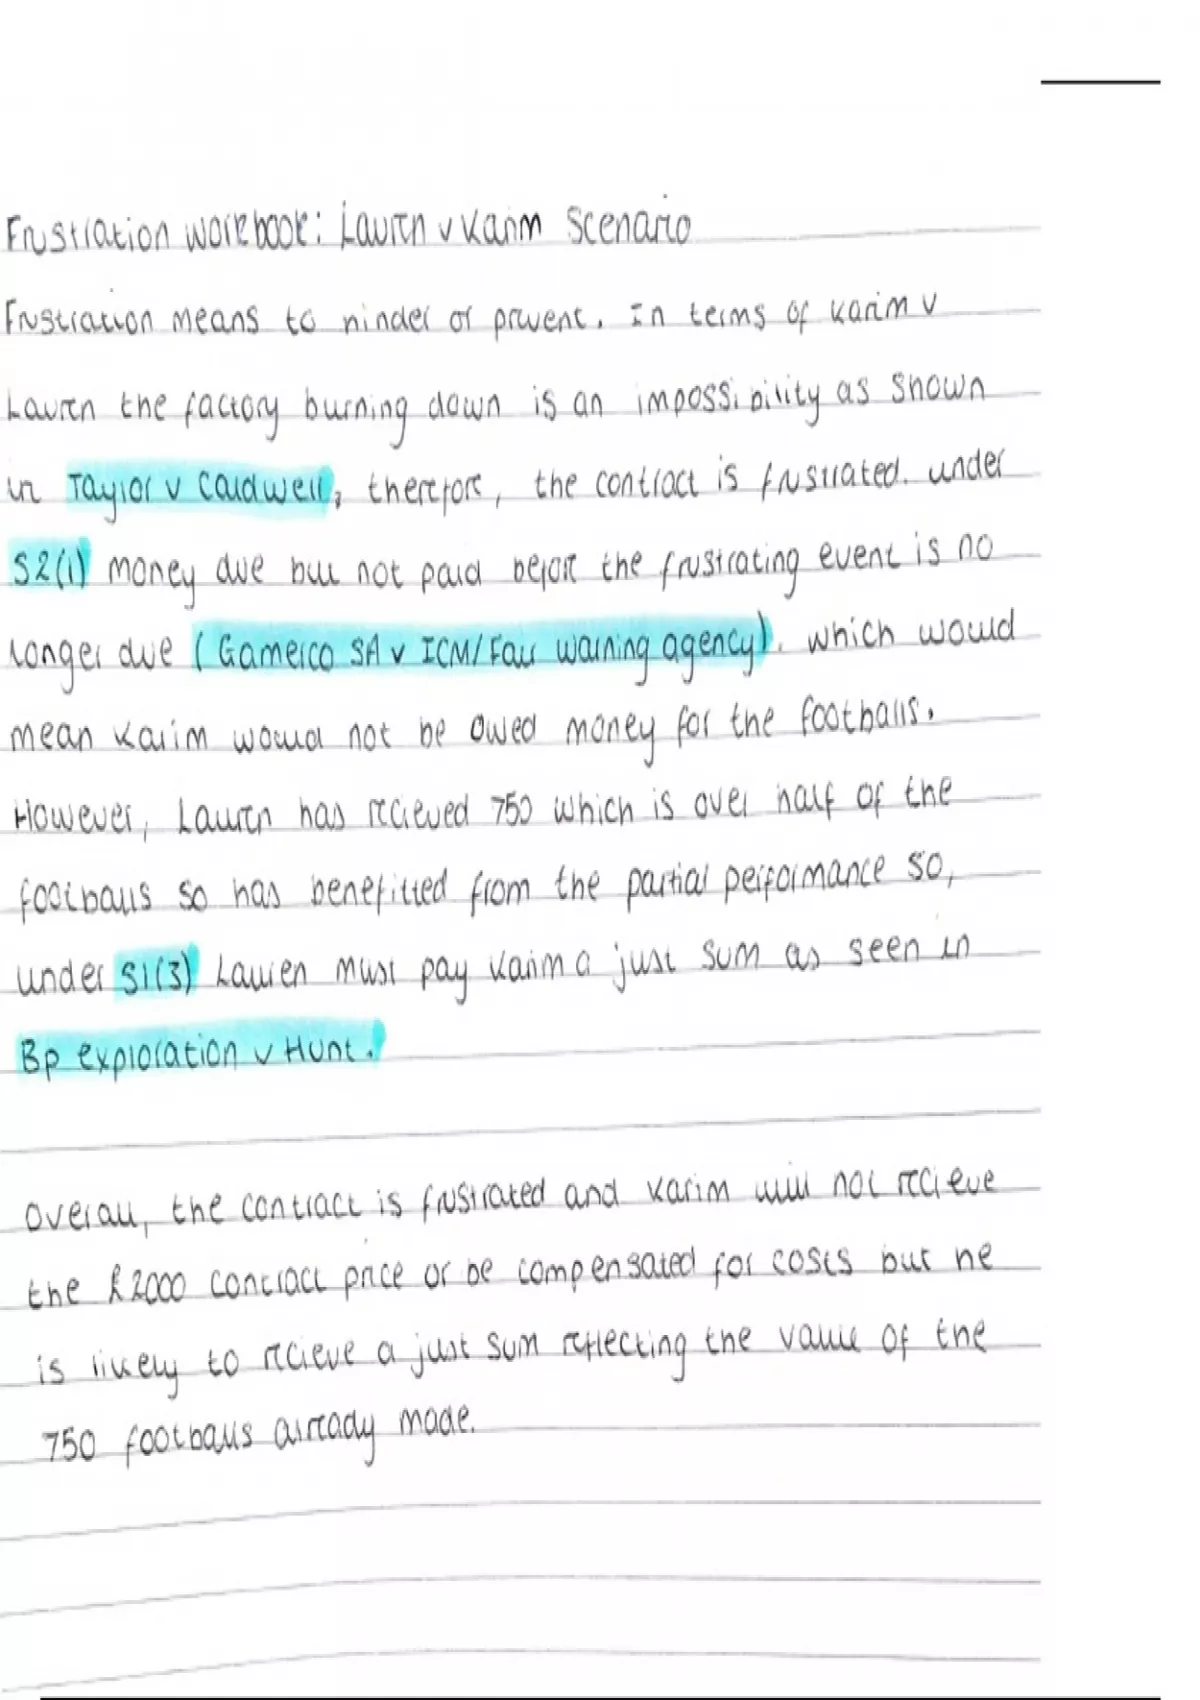 Frustration workbook: Lauren v Karim Scenario
Frustration means to hinder or prevent. In terms of Karim v
Lauren the factory burning down is an impossibility as shown
in Taylor v Caldwell, therefore, the contract is frustrated. under
S2(1) money due but not paid before the frustrating event is no
longer due (Gamerco SA v ICM/Fair warning agency). which would
mean Karim would not be owed money for the footballs.
However, Lauren has recieved 750 which is over half of the
footballs so has benefitted from the partial performance so,
under S1(3) Lauren must pay Karim a just sum as seen in
Bp exploration v Hunt.
overall, the contract is frustrated and Karim will not recieve
the £2000 contract price or be compensated for costs but he
is likely to recieve a just sum reflecting the value of the
750 footballs already made.